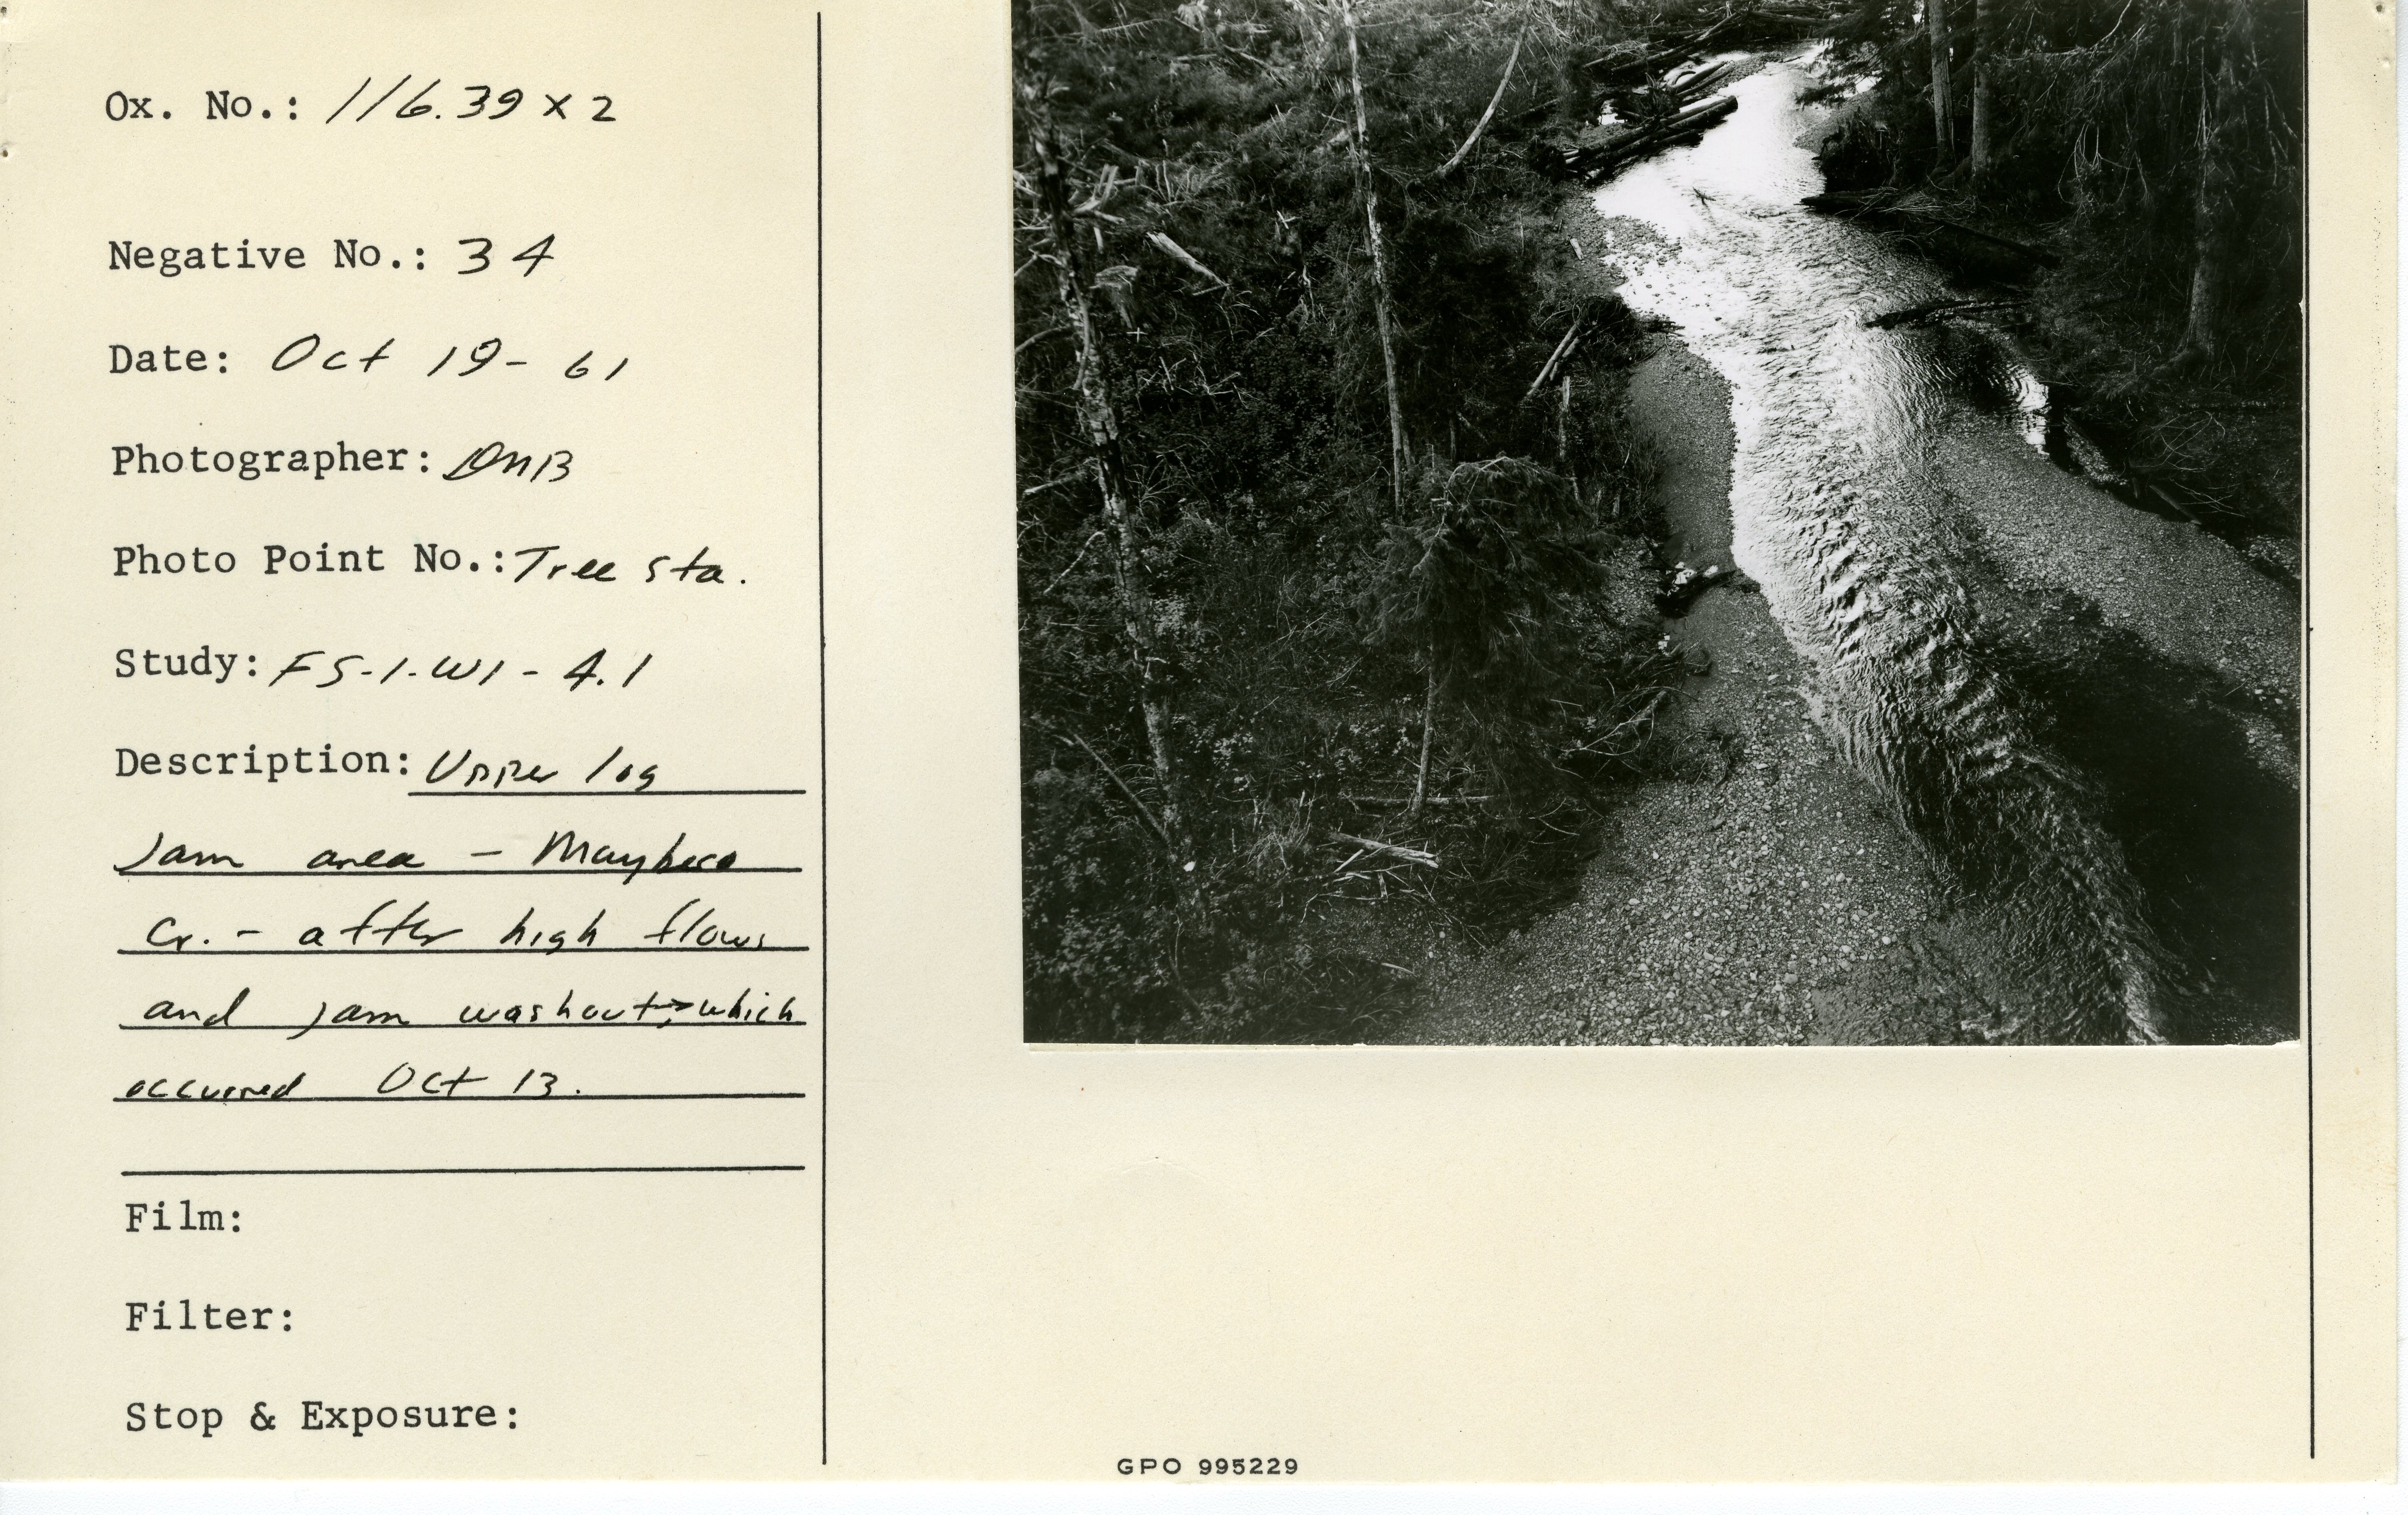 Ox. No.: 116.39 x 2
Negative No.: 34
Date: Oct 19- 61
Photographer: DMB
Photo Point No.: Tree Sta.
Study: FS-1-W1-4.1
Description: Upper log
jam area - Maybeso
Cr. - after high flows
and jam washout, which
occurred Oct 13.
Film:
Filter:
Stop & Exposure:
GPO 995229